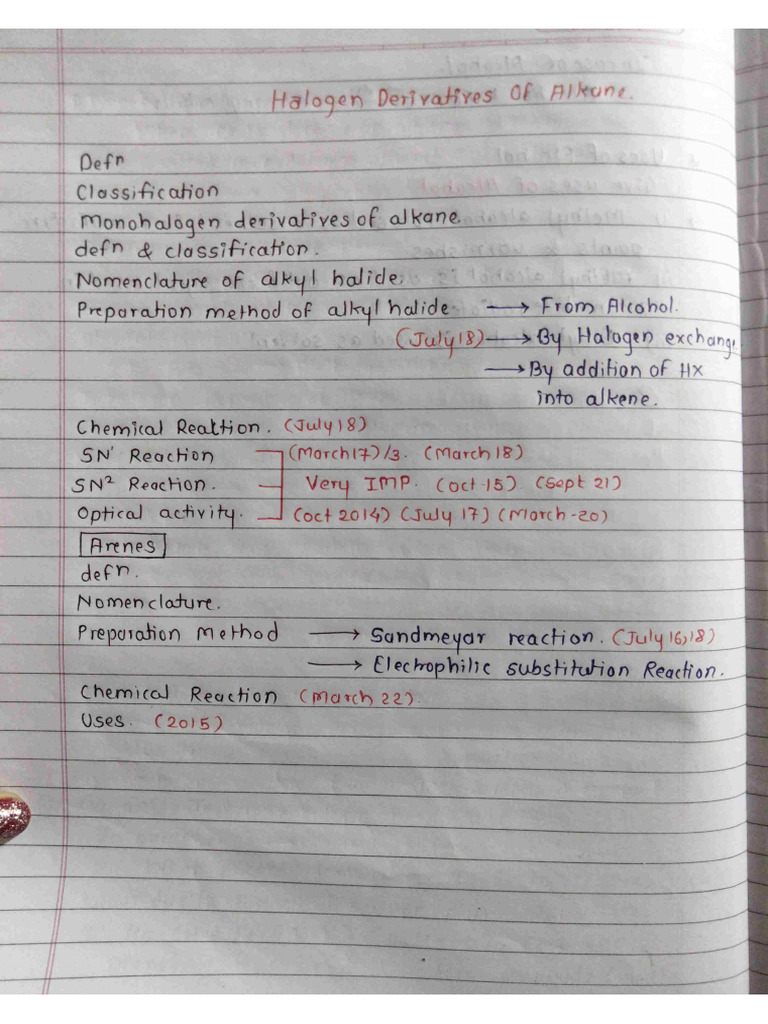 Halogen Derivatives Of Alkane.
Defn
Classification
Monohalogen derivatives of alkane
defn & classification.
Nomenclature of alkyl halide
Preparation method of alkyl halide → From Alcohol.
(July 18) → By Halogen exchange
→ By addition of HX
into alkene.
Chemical Reaktion. (July 18)
SN' Reaction (March 17)/3. (March 18)
SN² Reaction. Very IMP. (Oct-15) (Sept 21)
Optical activity. (Oct 2014) (July 17) (March-20)
Arenes
defn.
Nomenclature.
Preparation Method → Sandmeyar reaction. (July 16,18)
→ Electrophilic substitution Reaction.
Chemical Reaction (March 22).
Uses. (2015)